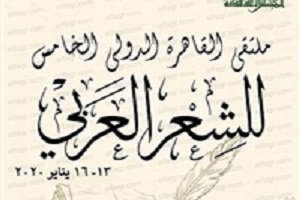 ملتقى القاهرة الدولى الخامس
للشعر العربي
١٣-١٦ يناير ٢٠٢٠